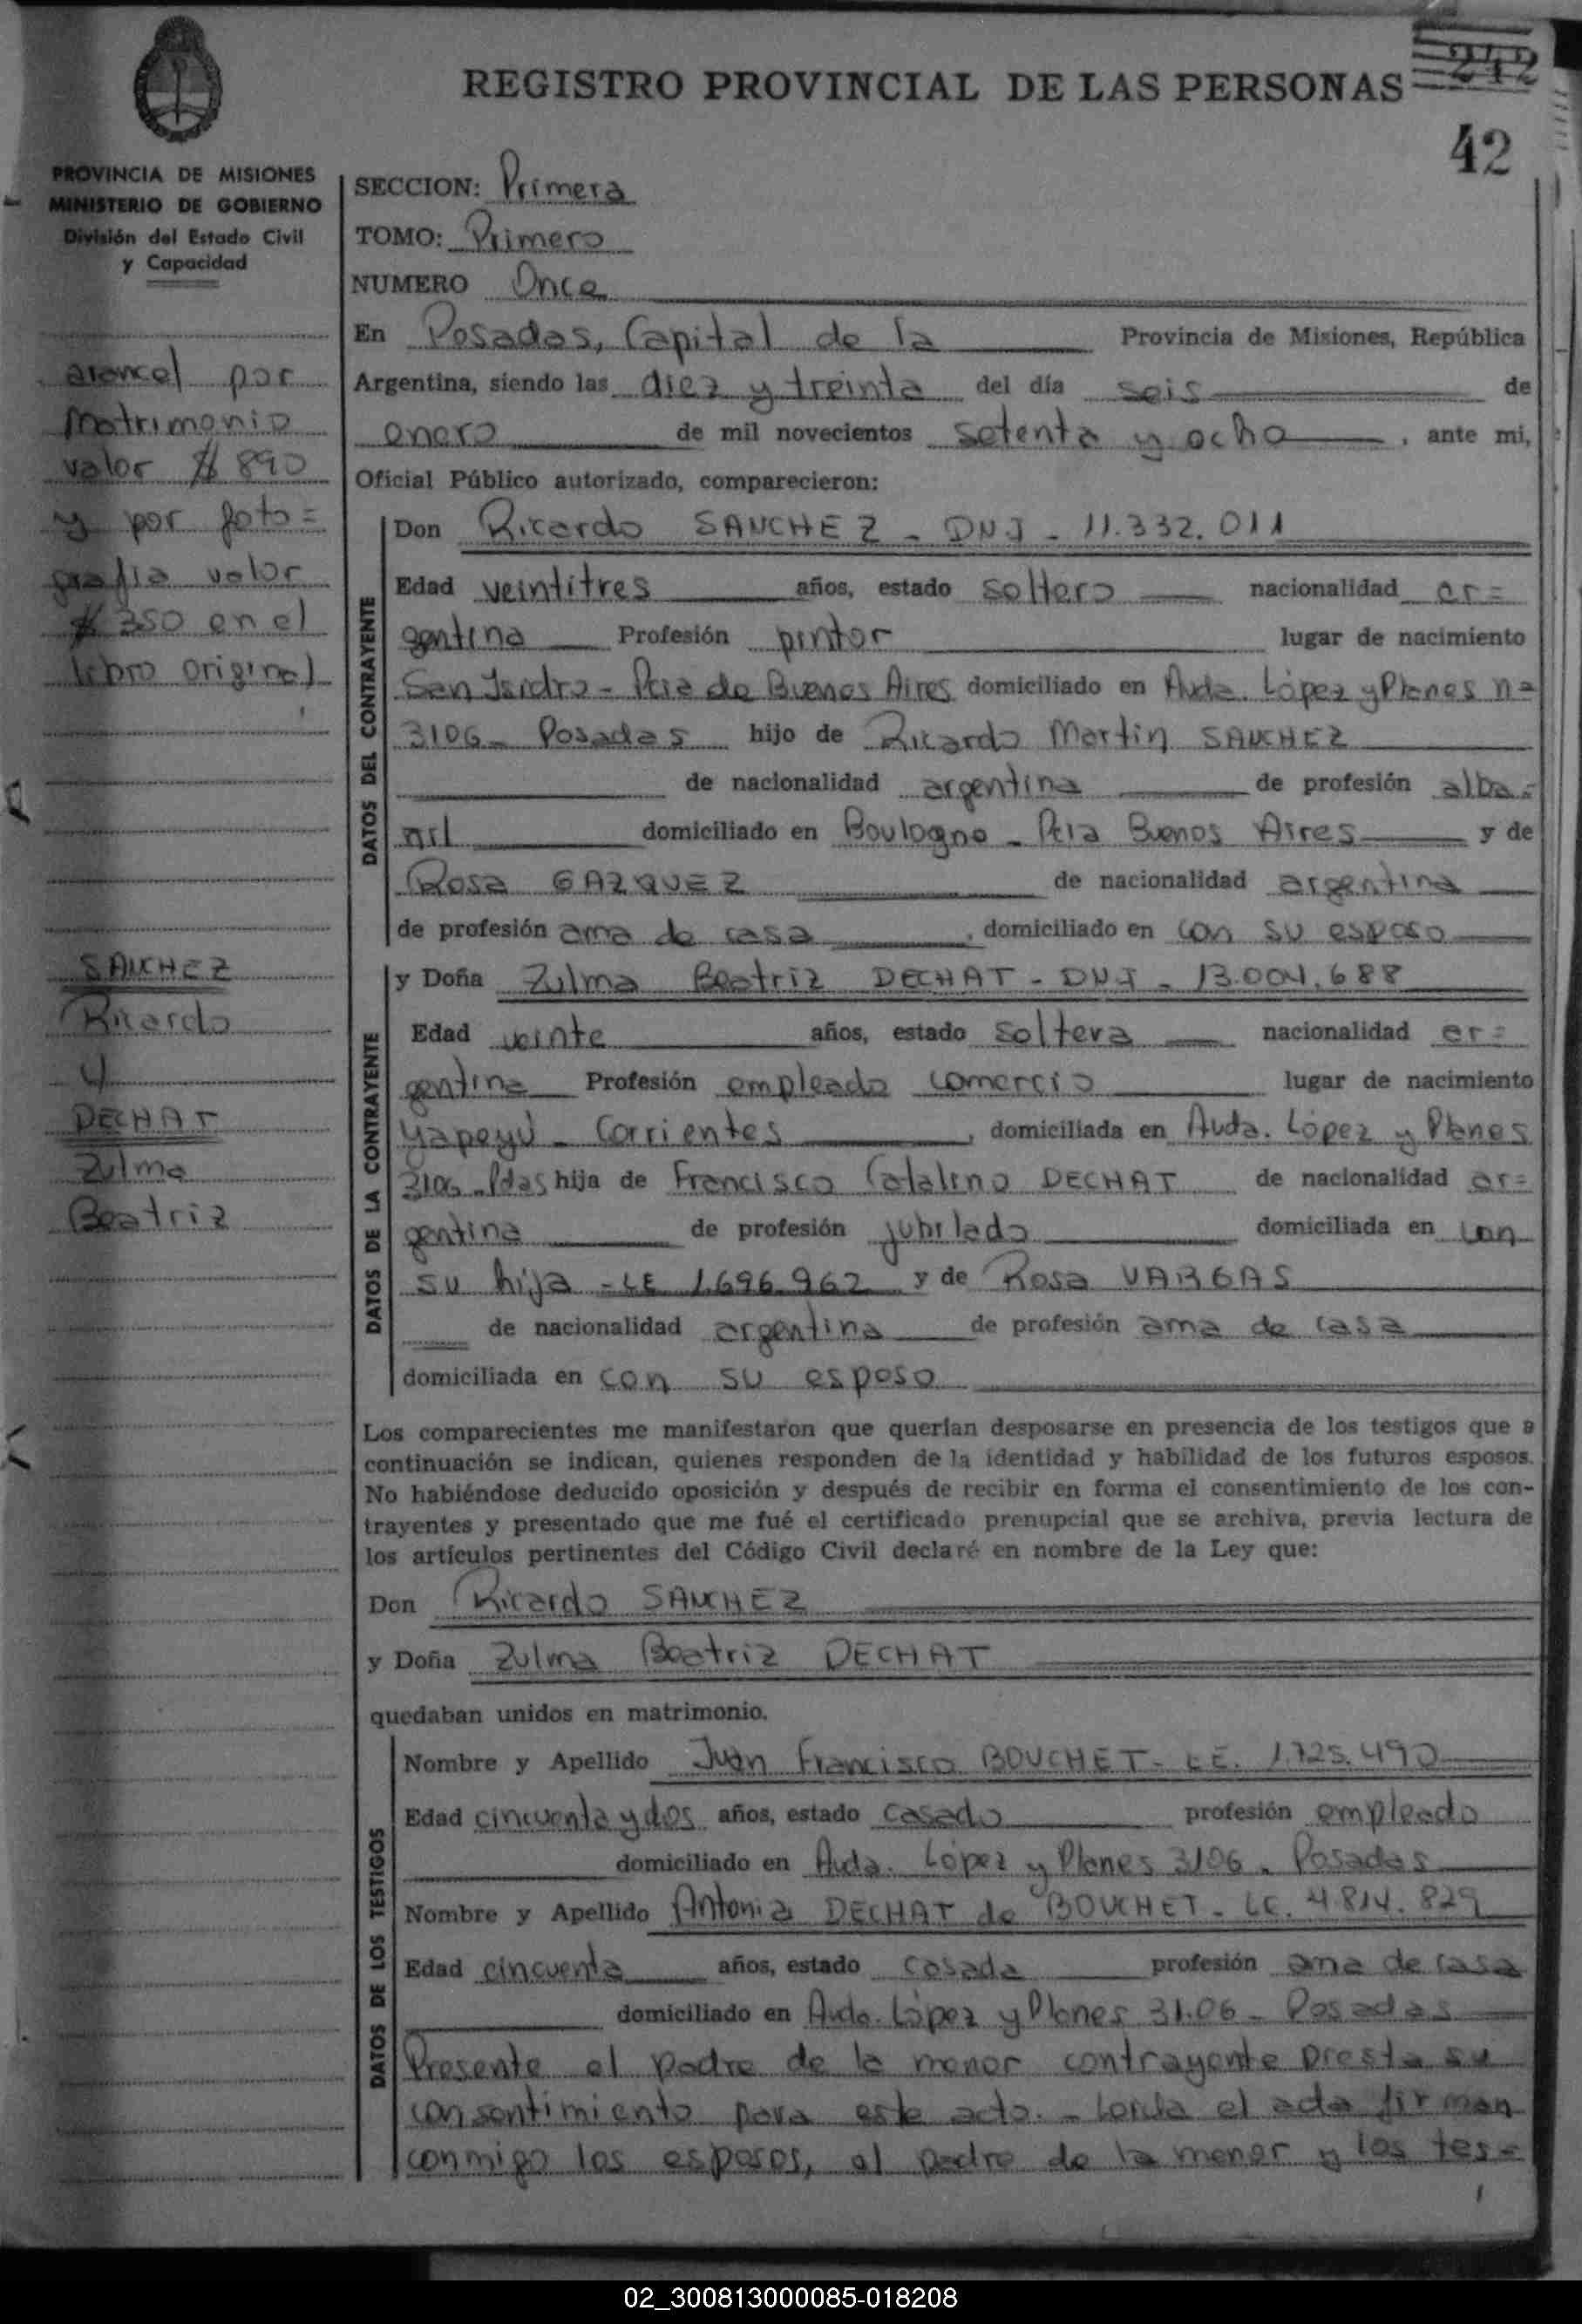 REGISTRO PROVINCIAL DE LAS PERSONAS
242
42
PROVINCIA DE MISIONES
MINISTERIO DE GOBIERNO
División del Estado Civil
y Capacidad
arancel por
matrimonio
valor $ 890
y por foto=
grafia valor
$ 350 en el
libro original
SANCHEZ
Ricardo
y
DECHAT
Zulma
Beatriz
SECCION: Primera
TOMO: Primero
NUMERO Once
En Posadas, Capital de la Provincia de Misiones, República
Argentina, siendo las diez y treinta del día seis de
enero de mil novecientos setenta y ocho, ante mi,
Oficial Público autorizado, comparecieron:
DATOS DEL CONTRAYENTE
Don Ricardo SANCHEZ - DNI - 11.332.011
Edad veintitres años, estado soltero nacionalidad ar=
gentina Profesión pintor lugar de nacimiento
San Isidro - Pcia de Buenos Aires domiciliado en Avda. López y Planes nº
3106 - Posadas hijo de Ricardo Martin SANCHEZ
de nacionalidad argentina de profesión alba=
nil domiciliado en Boulogne - Pcia Buenos Aires y de
Rosa GAZQUEZ de nacionalidad argentina
de profesión ama de casa, domiciliado en con su esposo
DATOS DE LA CONTRAYENTE
y Doña Zulma Beatriz DECHAT - DNI - 13.004.688
Edad veinte años, estado soltera nacionalidad ar=
gentina Profesión empleada comercio lugar de nacimiento
Yapeyú - Corrientes, domiciliada en Avda. López y Planes
3106 - Pdas hija de Francisco Catalino DECHAT de nacionalidad ar=
gentina de profesión jubilado domiciliada en con
su hija - LE 1.696.962 y de Rosa VARGAS
de nacionalidad argentina de profesión ama de casa
domiciliada en con su esposo
Los comparecientes me manifestaron que querían desposarse en presencia de los testigos que a
continuación se indican, quienes responden de la identidad y habilidad de los futuros esposos.
No habiéndose deducido oposición y después de recibir en forma el consentimiento de los con-
trayentes y presentado que me fué el certificado prenupcial que se archiva, previa lectura de
los artículos pertinentes del Código Civil declaré en nombre de la Ley que:
Don Ricardo SANCHEZ
y Doña Zulma Beatriz DECHAT
quedaban unidos en matrimonio.
DATOS DE LOS TESTIGOS
Nombre y Apellido Juan Francisco BOUCHET - LE. 1.725.490
Edad cincuenta y dos años, estado casado profesión empleado
domiciliado en Avda. López y Planes 3106 - Posadas
Nombre y Apellido Antonia DECHAT de BOUCHET - LC. 4.814.829
Edad cincuenta años, estado casada profesión ama de casa
domiciliado en Avda. López y Planes 3106 - Posadas
Presente el padre de la menor contrayente presta su
consentimiento para este acto. - Leida el acta firman
conmigo los esposos, el padre de la menor y los tes=
02_300813000085-018208